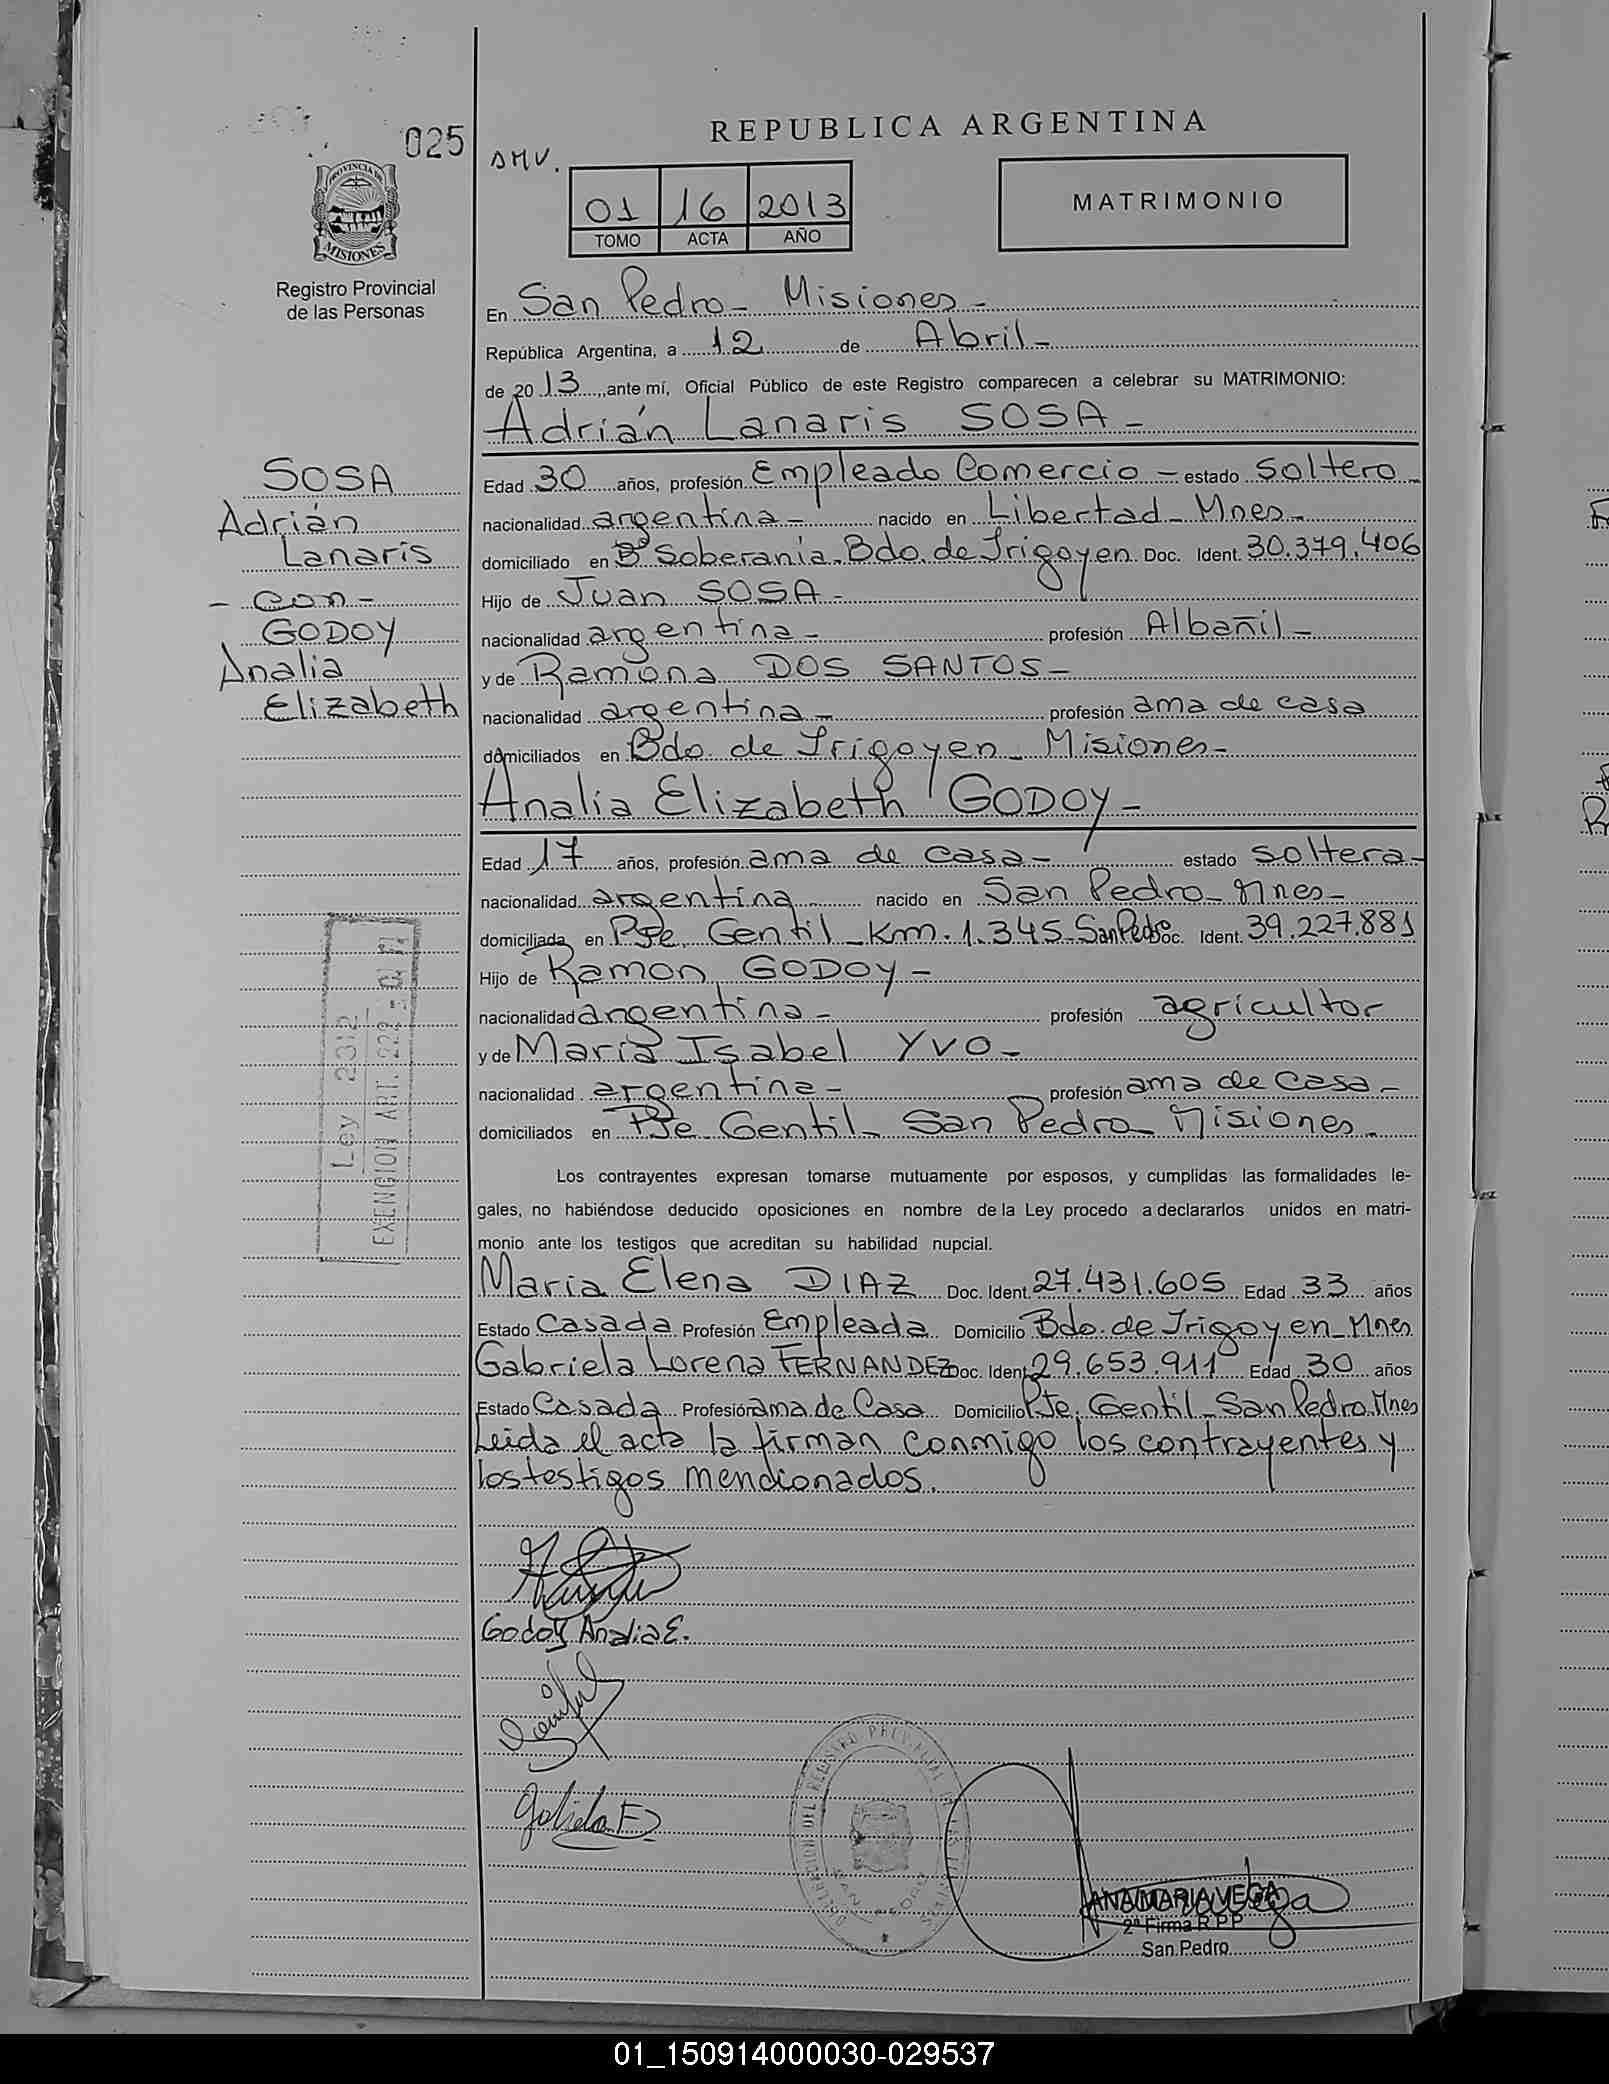 025
REPUBLICA ARGENTINA
DMV.
01 16 2013
TOMO ACTA AÑO
MATRIMONIO
PROVINCIA DE
MISIONES
Registro Provincial
de las Personas
En San Pedro - Misiones -
República Argentina, a 12 de Abril -
de 2013, ante mí, Oficial Público de este Registro comparecen a celebrar su MATRIMONIO:
Adrián Lanaris SOSA -
SOSA
Adrián
Lanaris
- con -
GODOY
Analia
Elizabeth
Edad 30 años, profesión Empleado Comercio - estado soltero -
nacionalidad argentina - nacido en Libertad - Mnes -
domiciliado en Bº Soberanía - Bdo. de Irigoyen Doc. Ident. 30.379.406
Hijo de Juan SOSA -
nacionalidad argentina - profesión Albañil -
y de Ramona DOS SANTOS -
nacionalidad argentina - profesión ama de casa
domiciliados en Bdo. de Irigoyen - Misiones -
Analia Elizabeth GODOY -
Edad 17 años, profesión ama de casa - estado soltera -
nacionalidad argentina nacido en San Pedro - Mnes -
domiciliada en Pje. Gentil - Km. 1.345 - San Pedro Doc. Ident. 39.227.881
Hijo de Ramon GODOY -
nacionalidad argentina - profesión agricultor
y de Maria Isabel YVO -
nacionalidad argentina - profesión ama de casa -
domiciliados en Pje Gentil - San Pedro - Misiones -
Ley 2312
EXENCION ART. 222
Los contrayentes expresan tomarse mutuamente por esposos, y cumplidas las formalidades le-
gales, no habiéndose deducido oposiciones en nombre de la Ley procedo a declararlos unidos en matri-
monio ante los testigos que acreditan su habilidad nupcial.
Maria Elena DIAZ Doc. Ident. 27.431.605 Edad 33 años
Estado Casada Profesión Empleada Domicilio Bdo. de Irigoyen - Mnes
Gabriela Lorena FERNANDEZ Doc. Ident. 29.653.911 Edad 30 años
Estado Casada Profesión ama de Casa Domicilio Pje. Gentil - San Pedro. Mnes
Leida el acta la firman conmigo los contrayentes y
los testigos mencionados.
Godoy Analia E.
DELEGACION DEL REGISTRO PROVINCIAL DE LAS
SAN PEDRO
ANA MARIA VEGA
2ª Firma R.P.P
San Pedro
01_150914000030-029537